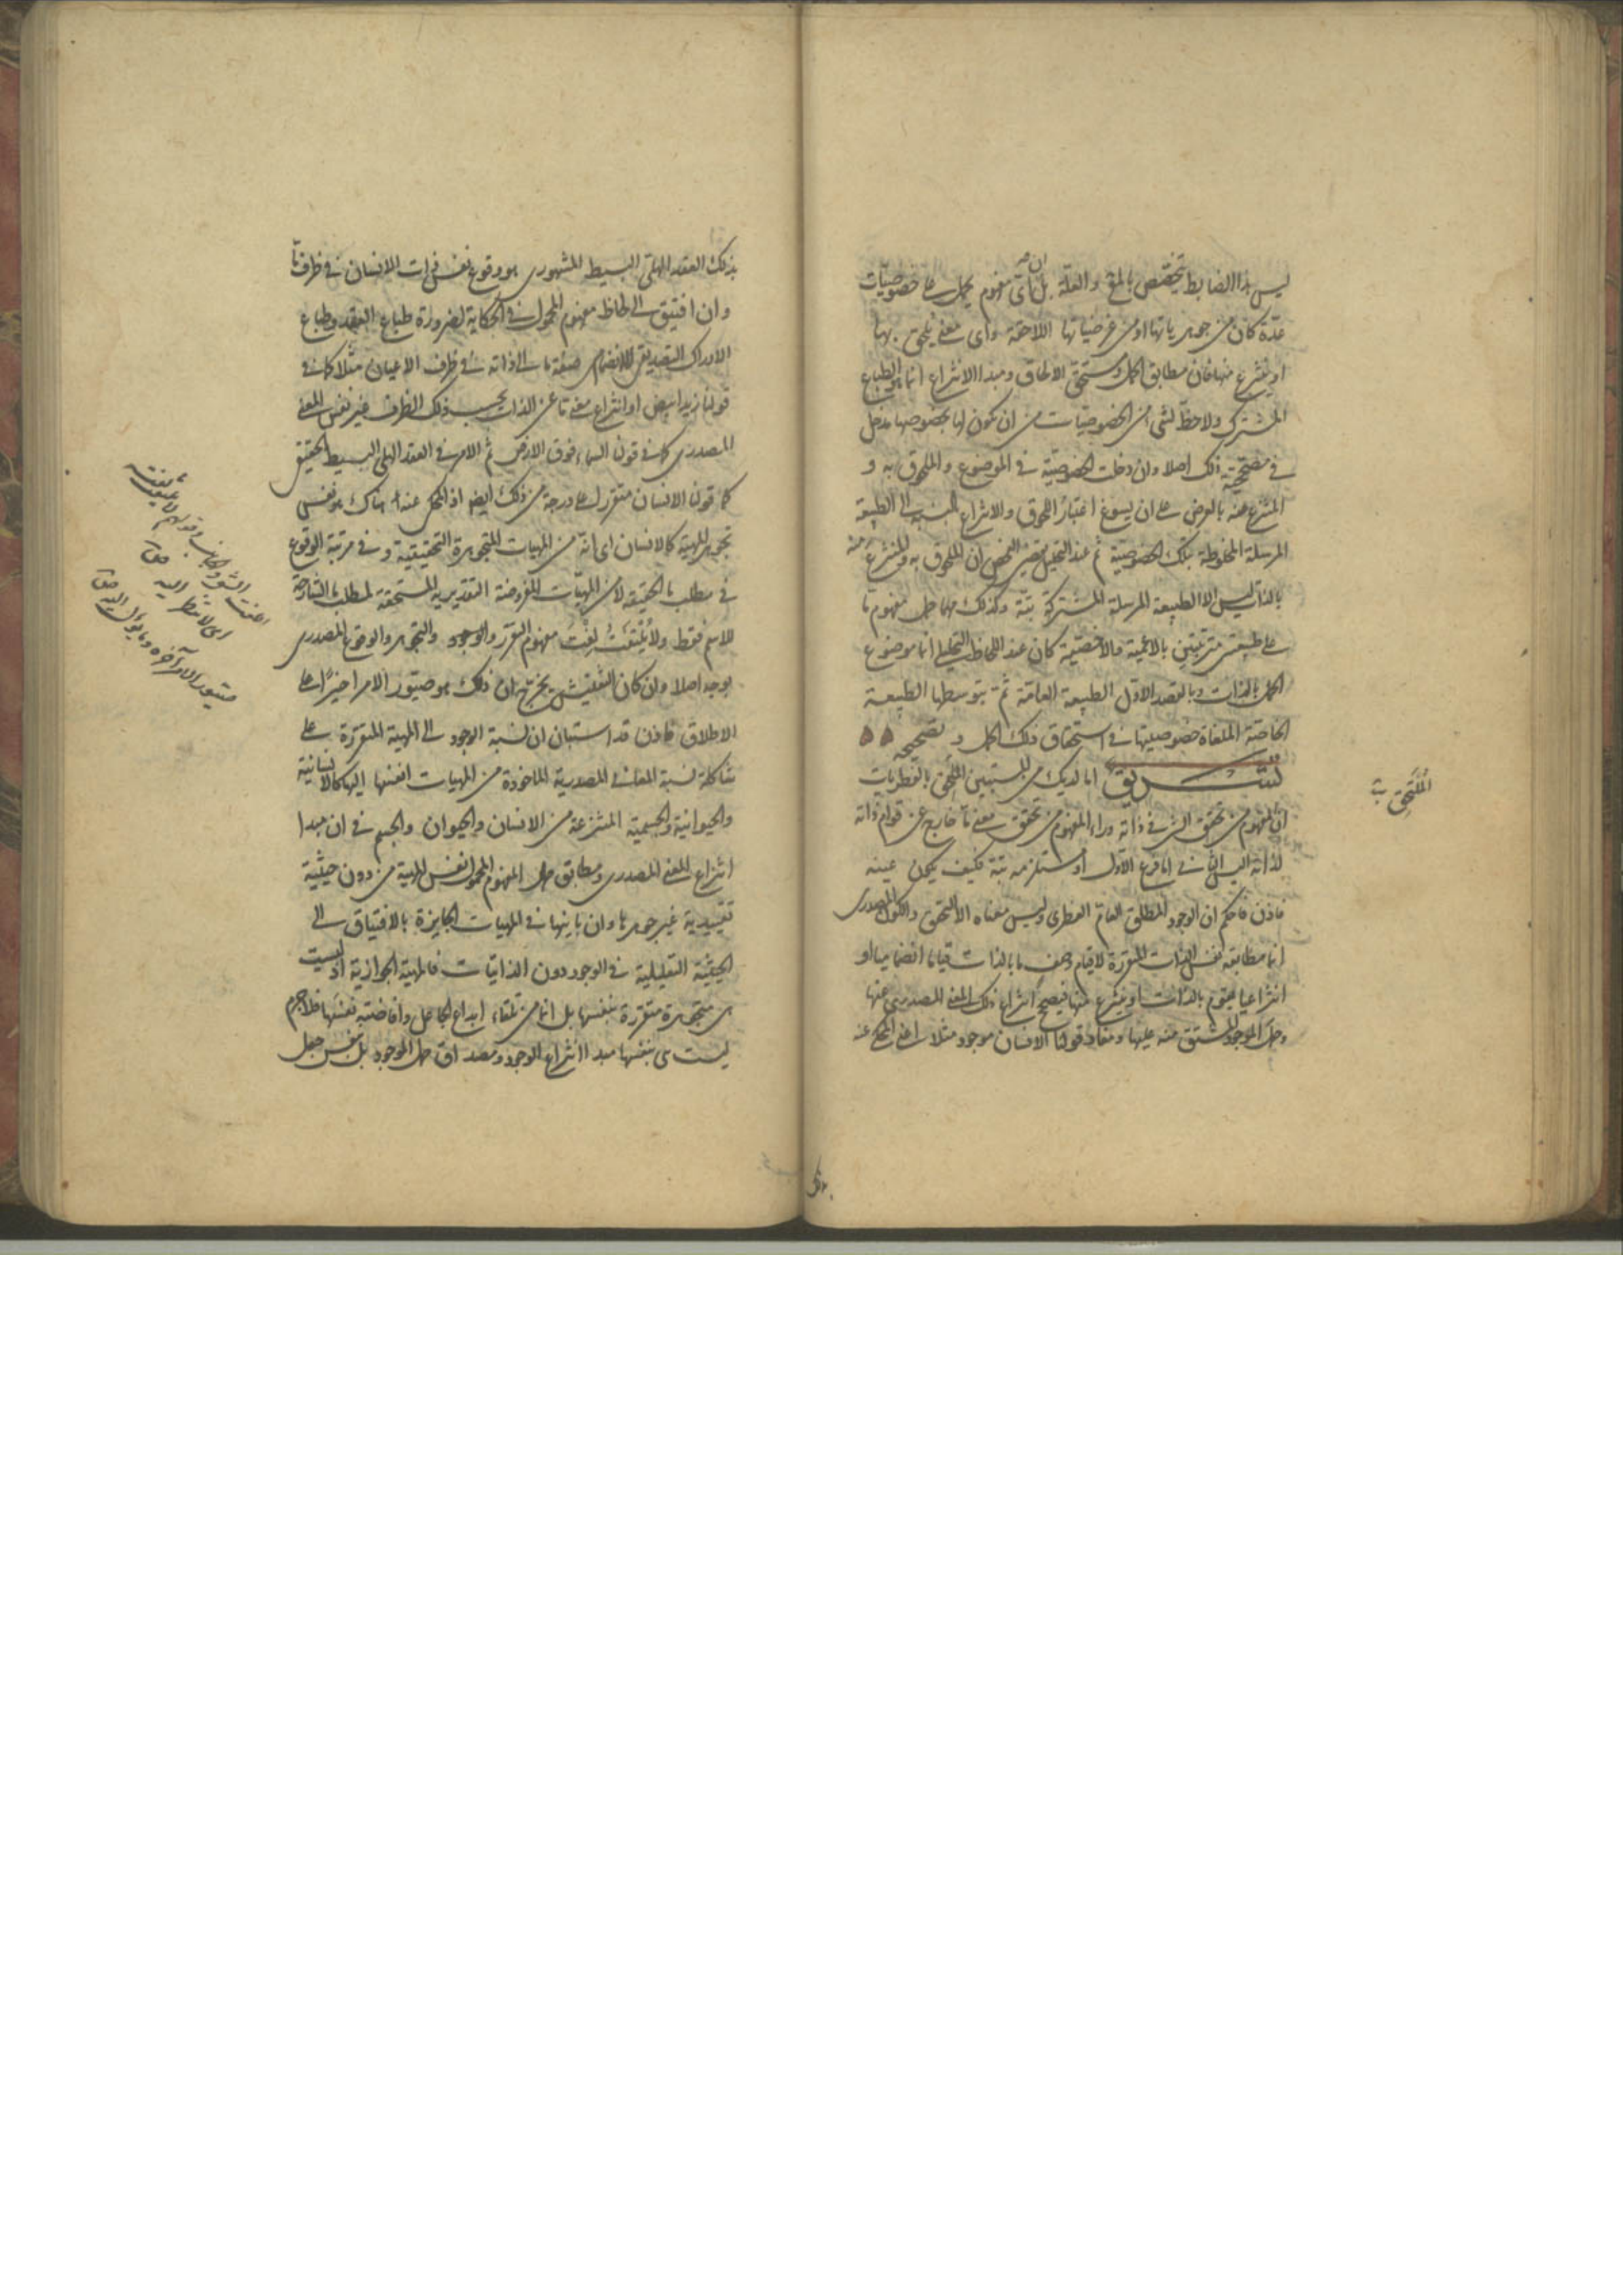 ليس هذا الضابط يختص بالمع والعلة بل ان اى مفهوم يحمل على خصوصيّات
عدّة كان من جوهرياتها او من عرضياتها اللاحقة واى معنى يلحق بها
او ينتزع منها فان مطابق الحمل ومستحق الالحاق ومبدا الانتزاع انما هو الطباع
المشترك ولا حظّ لشئ من الخصوصيات من ان يكون لها بخصوصها مدخل
فى مصححيّة ذلك اصلا وان دخلت الخصوصيّة فى الموضوع والملحوق به و
المنتزع عنه بالعرض على ان يسوغ اعتبار اللحوق والانتزاع بالنسبة الى الطبيعة
المرسلة المخلوطة بتلك الخصوصيّة ثم عند التحليل يقضى الفحص ان الملحوق به والمنتزع منه
بالذات ليس الا الطبيعة المرسلة المشتركة بتّة وكذلك مهما حمل مفهوم ما
على طبيعتين مترتبتين بالاعمّية والاخصّية كان عند اللحاظ التحليلى انما موضوع
الحمل بالذات وبالقصد الاول الطبيعة العامّة ثمّ بتوسطها الطبيعة
الخاصّة الملغاة خصوصيتها فى استحقاق ذلك الحمل و تصحيحه ۵۵
تشريق اما لديك من المستبين الملحق بالفطريات
انّ المفهوم من تحقق الشئ فى ذاته وراء المفهوم من تحقق معنى ما خارج عن قوام ذاته
لذاته اليس الثانى اما فرع الاول او مستلزمه بتة فكيف يكون عينه
فاذن فاحكم ان الوجود المطلق العام الفطرى وليس معناه الا التحقق والكون المصدرى
انما مطابقه نفس الذات المتقررة لا قيام وصف ما بالذات قياما انضماميا او
انتزاعيا يقوم بالذات او ينتزع منها فيصحح انتزاع ذلك المعنى المصدرى عنها
وحمل الموجود المشتق منه عليها ومفاد قولنا الانسان موجود مثلا اعنى المحكى عنه
المُلتَحِق
بذلك
بذلك العقد الهلىّ البسيط المشهورى هو وقوع نفس ذات الانسان فى ظرف مّا
وان افتيق الى لحاظ مفهوم المحمول فى الحكاية لضرورة طباع العقد وطباع
الادراك التصديقى لا انضمام صفة ما الى ذاته فى ظرف الاعيان مثلا كما فى
قولنا زيد ابيض او انتزاع معنى ما عن الذات بحسب ذلك الظرف غير نفس المعنى
المصدرى كما فى قولنا السماء فوق الارض ثم الامر فى العقد الهلى البسيط الحقيقى
كما قولنا الانسان متقرر اعلى درجة من ذلك ايضا اذ المحكى عنه هناك هو نفس
تجوهر المهية كالانسان اى انّه من المهيات المتجوهرة التحقيقية وفى مرتبة الوقوع
فى مطلب ما الحقيقة لا من المهيّات المفروضة التقديرية المستحقة لمطلب ما الشارحة
للاسم فقط ولا يُلتَفَتُ لِفْتَ مفهوم التقرر والوجود والتجوهر والوقوع المصدرى
بوجه اصلا وان كان التفتيش يخرج ان ذلك هو صيّور الامر اخيرًا على
الاطلاق فاذن قد استبان ان نسبة الوجود الى المهية المتقررة على
شاكلة نسبة المعانى المصدرية الماخوذة من المهيات انفسها اليها كالانسانية
والحيوانية والجسمية المنتزعة من الانسان والحيوان والجسم فى ان مبدا
انتزاع المعنى المصدرى ومطابق حمل المفهوم المحمول نفس المهية من دون حيثية
تقييدية غير جوهرها وان باينها فى المهيات الجايزة بالافتياق الى
الحيثية التعليلية فى الوجود دون الذاتيات فالمهية الجوازية اذ ليست
هى متجوهرة متقررة بنفسها بل انما من تلقاء ابداع الجاعل وافاضته نفسَها فلا جرم
ليست هى بنفسها مبدا انتزاع الوجود ومصداق حمل الموجود بل بنفس جعل
اى لا ينظر اليه
صيّور الامر آخره وما يؤل اليه